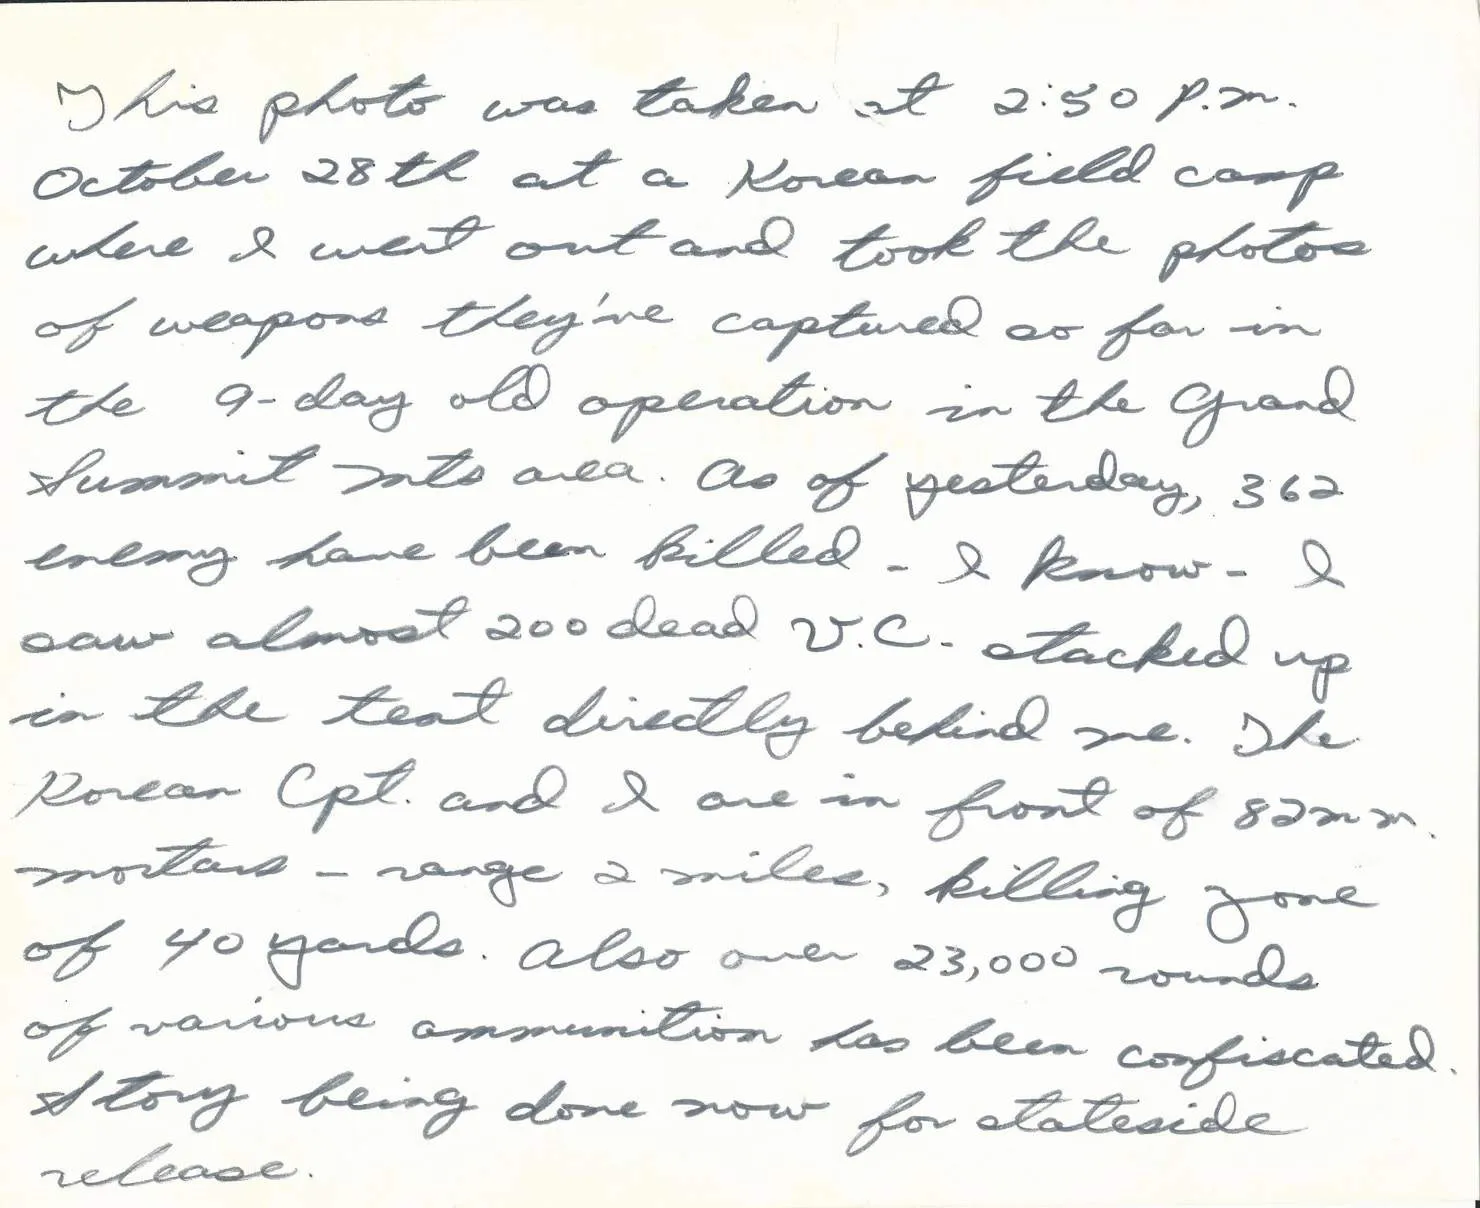 This photo was taken at 2:50 p.m.
October 28th at a Korean field camp
where I went out and took the photos
of weapons they've captured so far in
the 9-day old operation in the Grand
Summit Mts area. As of yesterday, 362
enemy have been killed - I know - I
saw almost 200 dead V.C. stacked up
in the tent directly behind me. The
Korean Cpt. and I are in front of 82mm.
mortars - range 2 miles, killing zone
of 40 yards. Also over 23,000 rounds
of various ammunition has been confiscated.
Story being done now for stateside
release.